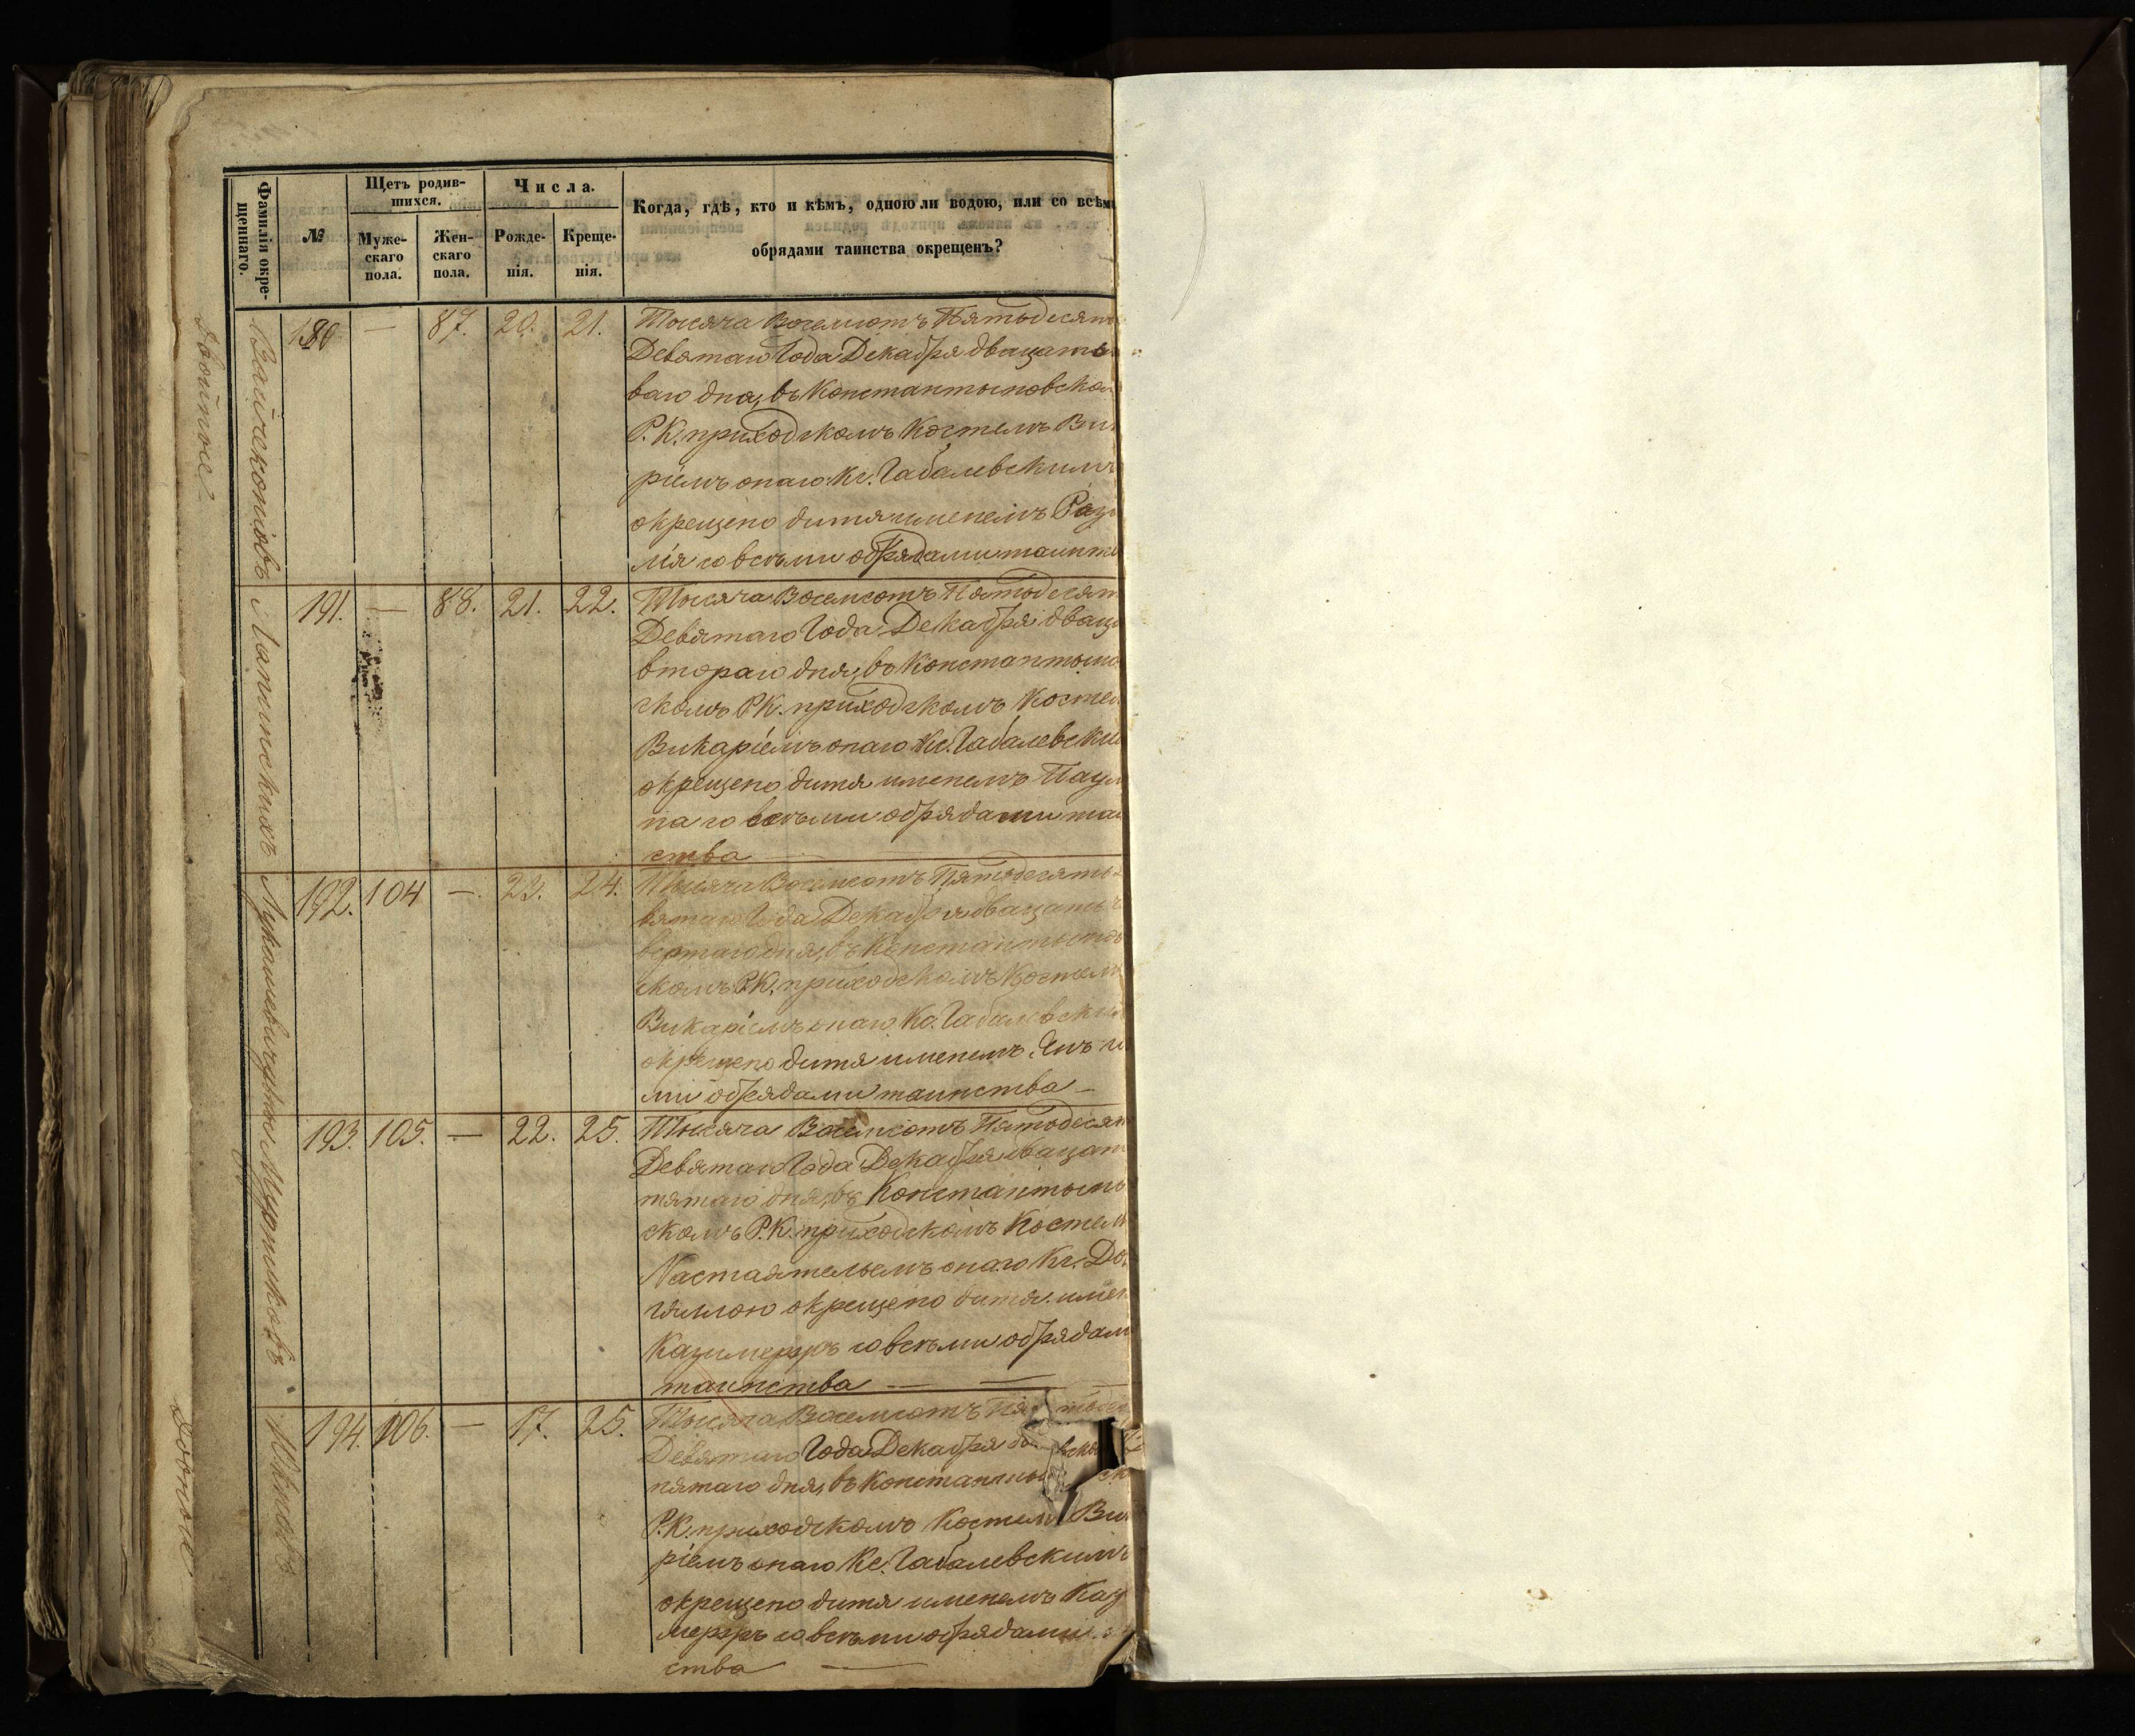 Фамилія окре-
щеннаго.
№
Щетъ родив-
шихся.
Муже-
скаго
пола.
Жен-
скаго
пола.
Числа.
Рожде-
нія.
Креще-
нія.
Когда, гдѣ, кто и кѣмъ, одною ли водою, или со всѣми
обрядами таинства окрещенъ?
190 — 87. 20. 21.
Тысяча Восемсотъ Пятьдесятъ
Девятаго Года Декабря двацать
ваго дня, въ Константыновском
Р.К. приходскомъ Костелѣ Ви
ріемъ онаго Кс. Габалевскимъ
окрещено дитя именемъ
лія со всѣми обрядами таинст
191. — 88. 21. 22.
Тысяча Восемсотъ Пятьдесят
Девятаго Года Декабря дваца
втораго дня, въ Константыно
скомъ Р.К. приходскомъ Костел
Викаріемъ онаго Кс. Габалевски
окрещено дитя именемъ Паул
на со всѣми обрядами таи
ства —
Лапинскихъ
192. 104 — 23. 24.
Тысяча Восемсотъ Пятьдесять
вятаго Года Декабря двацать ч
вертаго дня, въ Константынов
скомъ Р.К. приходскомъ Костел
Викаріемъ онаго Кс. Габалевски
окрещено дитя именемъ Янъ
ми обрядами таинства —
193. 105. — 22. 25.
Тысяча Восемсотъ Пятьдесят
Девятаго Года Декабря двацат
пятаго дня, въ Константыно
скомъ Р.К. приходскомъ Костел
Настаятельемъ онаго Кс. До
окрещено дитя имен
Казимеръ со всѣми обрядам
таинства — —
194. 106. — 17. 25.
Тысяча Восемсотъ Пятьдес
Девятаго Года Декабря
пятаго дня, въ Константы
Р.К. приходскомъ Костелѣ Ви
ріемъ онаго Кс. Габалевскимъ
окрещено дитя именемъ Каз
меръ со всѣми обрядами
ства —